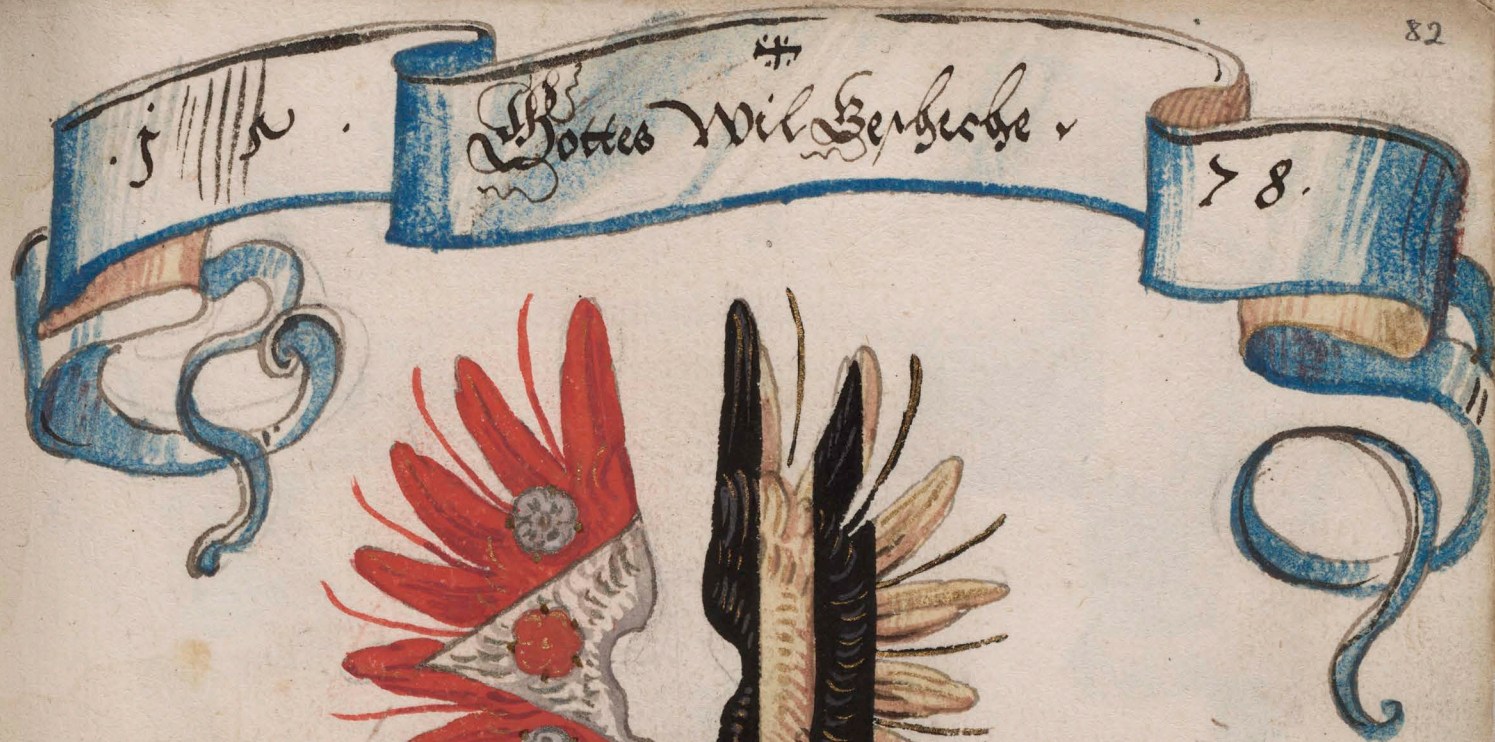 82
· 1 5 · Gottes Wil Geschehe · 78 ·